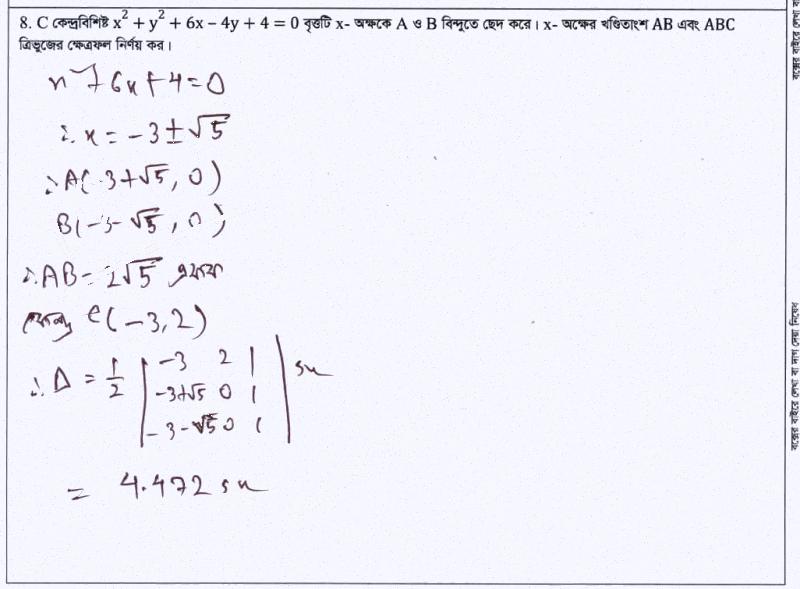 8. C কেন্দ্রবিশিষ্ট x² + y² + 6x − 4y + 4 = 0 বৃত্তটি x- অক্ষকে A ও B বিন্দুতে ছেদ করে। x- অক্ষের খণ্ডিতাংশ AB এবং ABC
ত্রিভুজের ক্ষেত্রফল নির্ণয় কর।
x² + 6x + 4 = 0
∴ x = −3 ± √5
∴ A(-3+√5, 0)
B(−3−√5, 0)
∴ AB = 2√5 একক
কেন্দ্র C(−3, 2)
∴ Δ = 1/2 | −3 2 1 | su
−3+√5 0 1
−3−√5 0 1
= 4.472 su
বক্সের বাইরে লেখা বা দাগ দেয়া নিষেধ